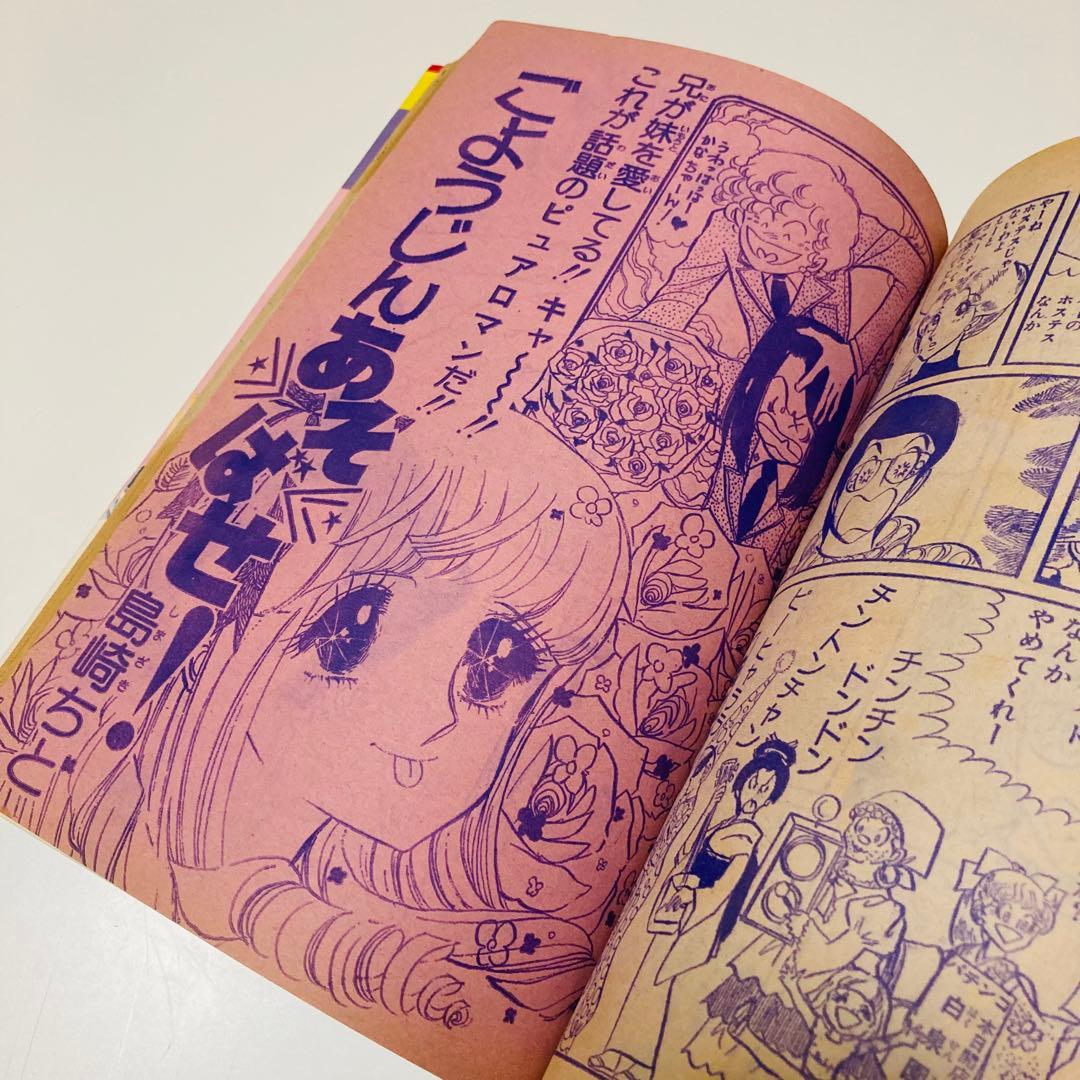 兄が妹を愛してる!! キャ〜〜〜!!
これが話題のピュアロマンだ!!
うわっはっはー
かなちゃーん!♥
ごようじん
あそばせ!
島崎ちと
やーね
ホステスじゃ
ないわよ
ホステス
なんか
なんか
やめてくれー
チンチン
ドンドン
チントンチャン
本日開店
パチンコ
白泉